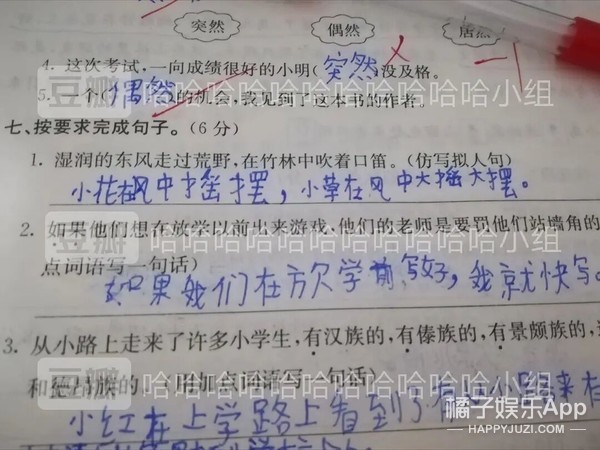 突然 偶然 居然
4. 这次考试,一向成绩很好的小明(突然)没及格。
5. 一个(偶然)的机会,我见到了这本书的作者。
七、按要求完成句子。(6分)
1. 湿润的东风走过荒野,在竹林中吹着口笛。(仿写拟人句)
小花在风中摇摆，小草在风中大摇大摆。
2. 如果他们想在放学以前出来游戏,他们的老师是要罚他们站墙角的
点词语写一句话)
如果我们在放学前写好，我就快写。
3. 从小路上走来了许多小学生,有汉族的,有傣族的,有景颇族的,
和德昂族的 (用加点词语写一句话)
小红在上学路上看到了有
豆瓣 哈哈哈哈哈哈哈哈哈哈小组
橘子娱乐App
HAPPYJUZI.COM